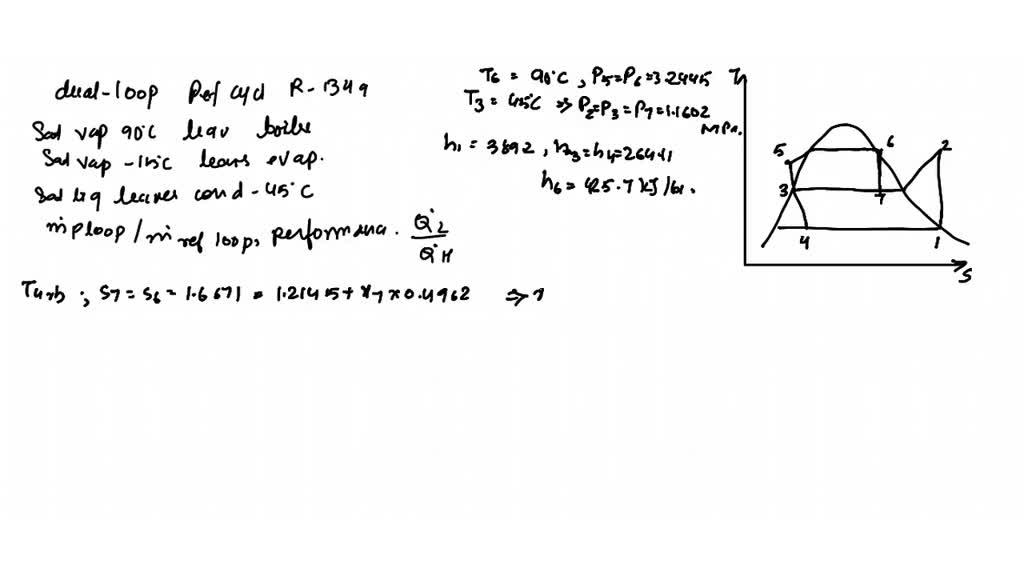 dual-loop Ref cycl R-134a
Sat vap 90°C leav boiler
Sat vap -15°C leaves evap.
Sat liq leaves cond - 45°C
ṁ p loop / ṁ ref loop, performance. Q̇L / Q̇H
T6 = 90°C, P5=P6=3.2445
T3 = 45°C ⇒ P2=P3=P7=1.1602 MPa.
h1 = 389.2, h3=h4=264.11
h6 = 425.7 kJ/kg.
T
5 6 2
3 7
4 1
S
Turb ; S7 = S6 = 1.6671 = 1.2145 + x7 × 0.4962 ⇒